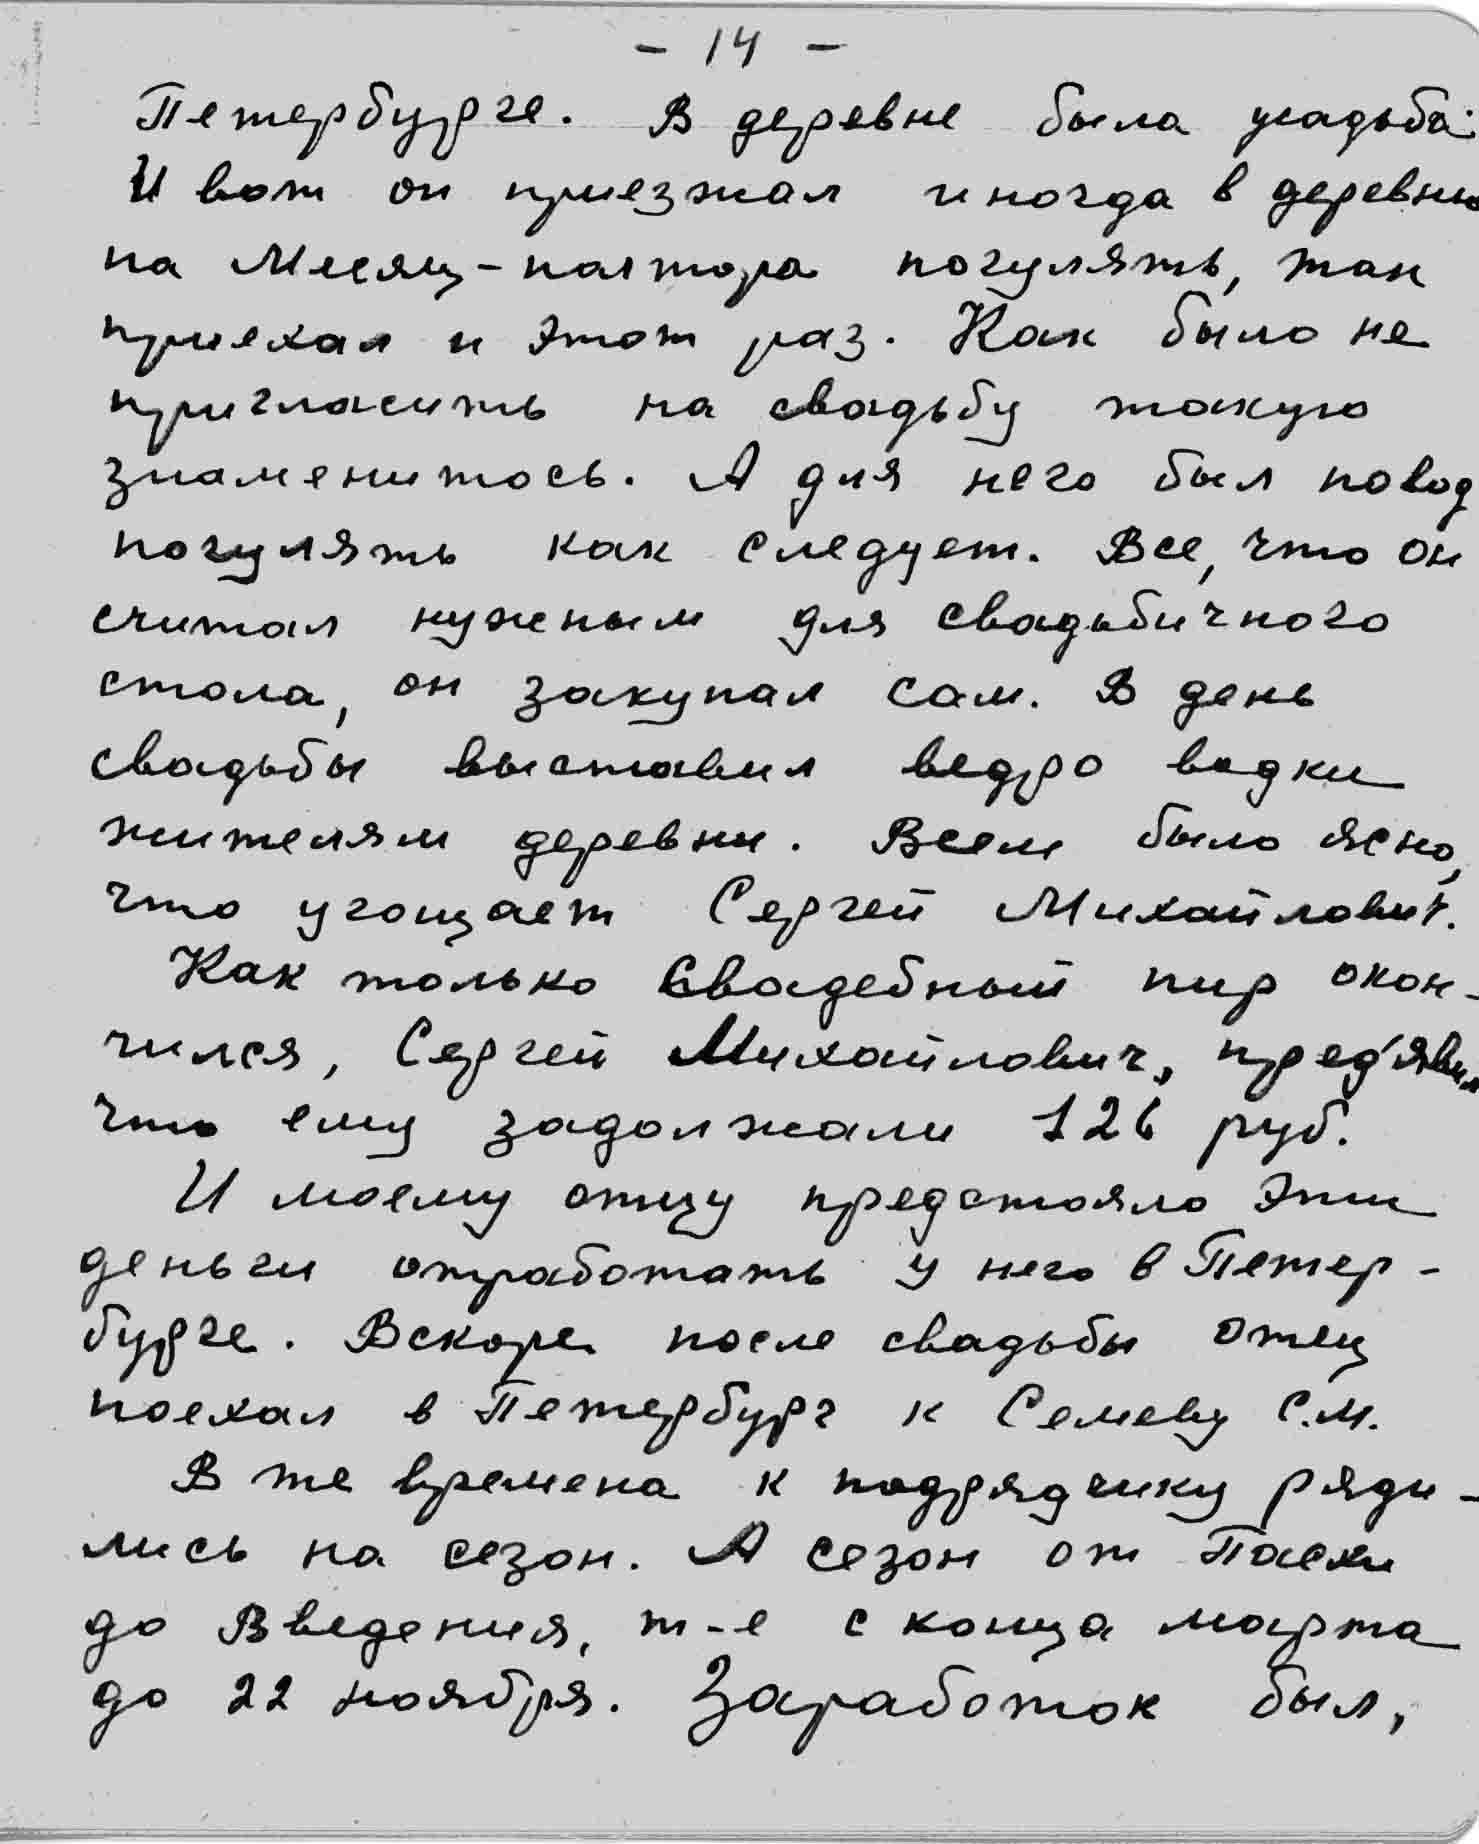 - 14 -
Петербурге. В деревне была усадьба.
И вот он приезжал иногда в деревню
на месяц-полтора погулять, так
приехал и этот раз. Как было не
пригласить на свадьбу такую
знаменитось. А для него был повод
погулять как следует. Все, что он
считал нужным для свадьбичного
стола, он закупал сам. В день
свадьбы выставил ведро водки
жителям деревни. Всем было ясно,
что угощает Сергей Михайлович.
Как только свадебный пир окон-
чился, Сергей Михайлович, пред'явил
что ему задолжали 126 руб.
И моему отцу предстояло эти
деньги отработать у него в Петер-
бурге. Вскоре после свадьбы отец
поехал в Петербург к Семеву С.М.
В те времена к подрядчику ряди-
лись на сезон. А сезон от Пасхи
до Введения, т-е с конца марта
до 22 ноября. Заработок был,